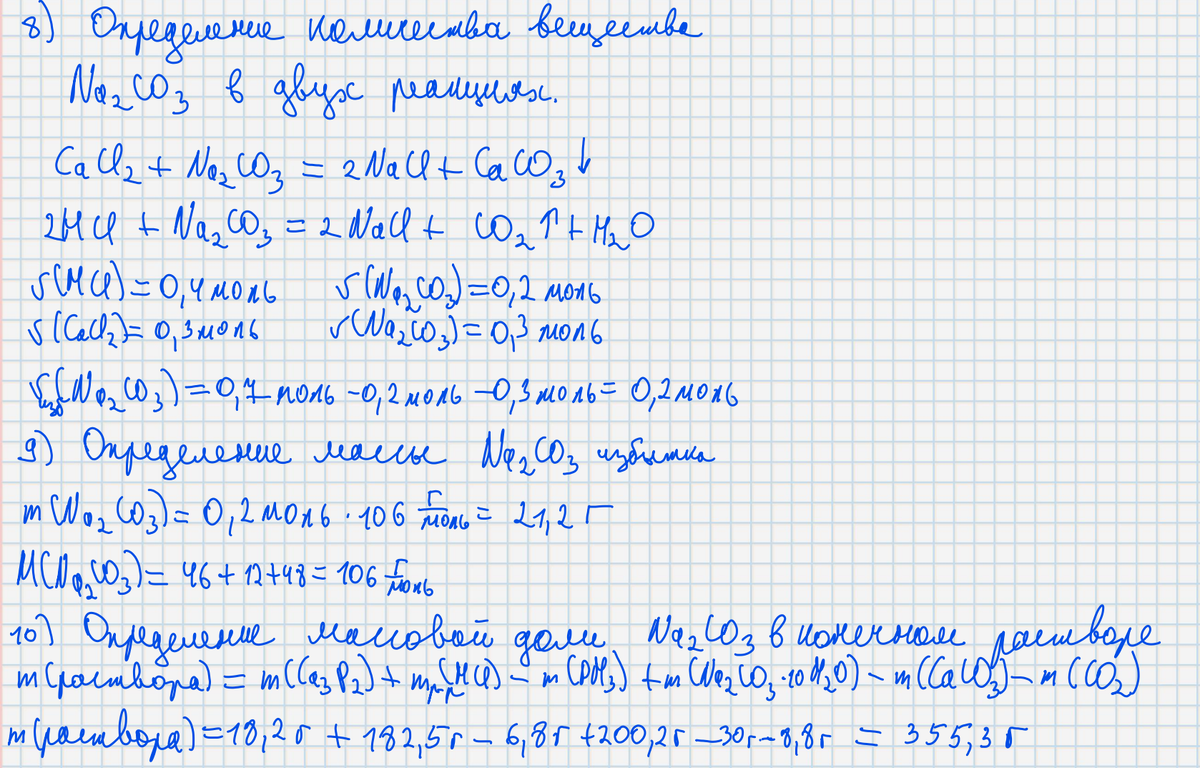 8) Определение количества вещества
Na₂CO₃ в двух реакциях.
CaCl₂ + Na₂CO₃ = 2NaCl + CaCO₃↓
2HCl + Na₂CO₃ = 2NaCl + CO₂↑ + H₂O
ν(HCl) = 0,4 моль ν(Na₂CO₃) = 0,2 моль
ν(CaCl₂) = 0,3 моль ν(Na₂CO₃) = 0,3 моль
νизб(Na₂CO₃) = 0,7 моль - 0,2 моль - 0,3 моль = 0,2 моль
9) Определение массы Na₂CO₃ избытка
m(Na₂CO₃) = 0,2 моль · 106 г/моль = 21,2 г
M(Na₂CO₃) = 46 + 12 + 48 = 106 г/моль
10) Определение массовой доли Na₂CO₃ в конечном растворе
m(раствора) = m(Ca₃P₂) + mр-р(HCl) - m(PH₃) + m(Na₂CO₃·10H₂O) - m(CaCO₃) - m(CO₂)
m(раствора) = 18,2 г + 182,5 г - 6,8 г + 200,2 г - 30 г - 8,8 г = 355,3 г